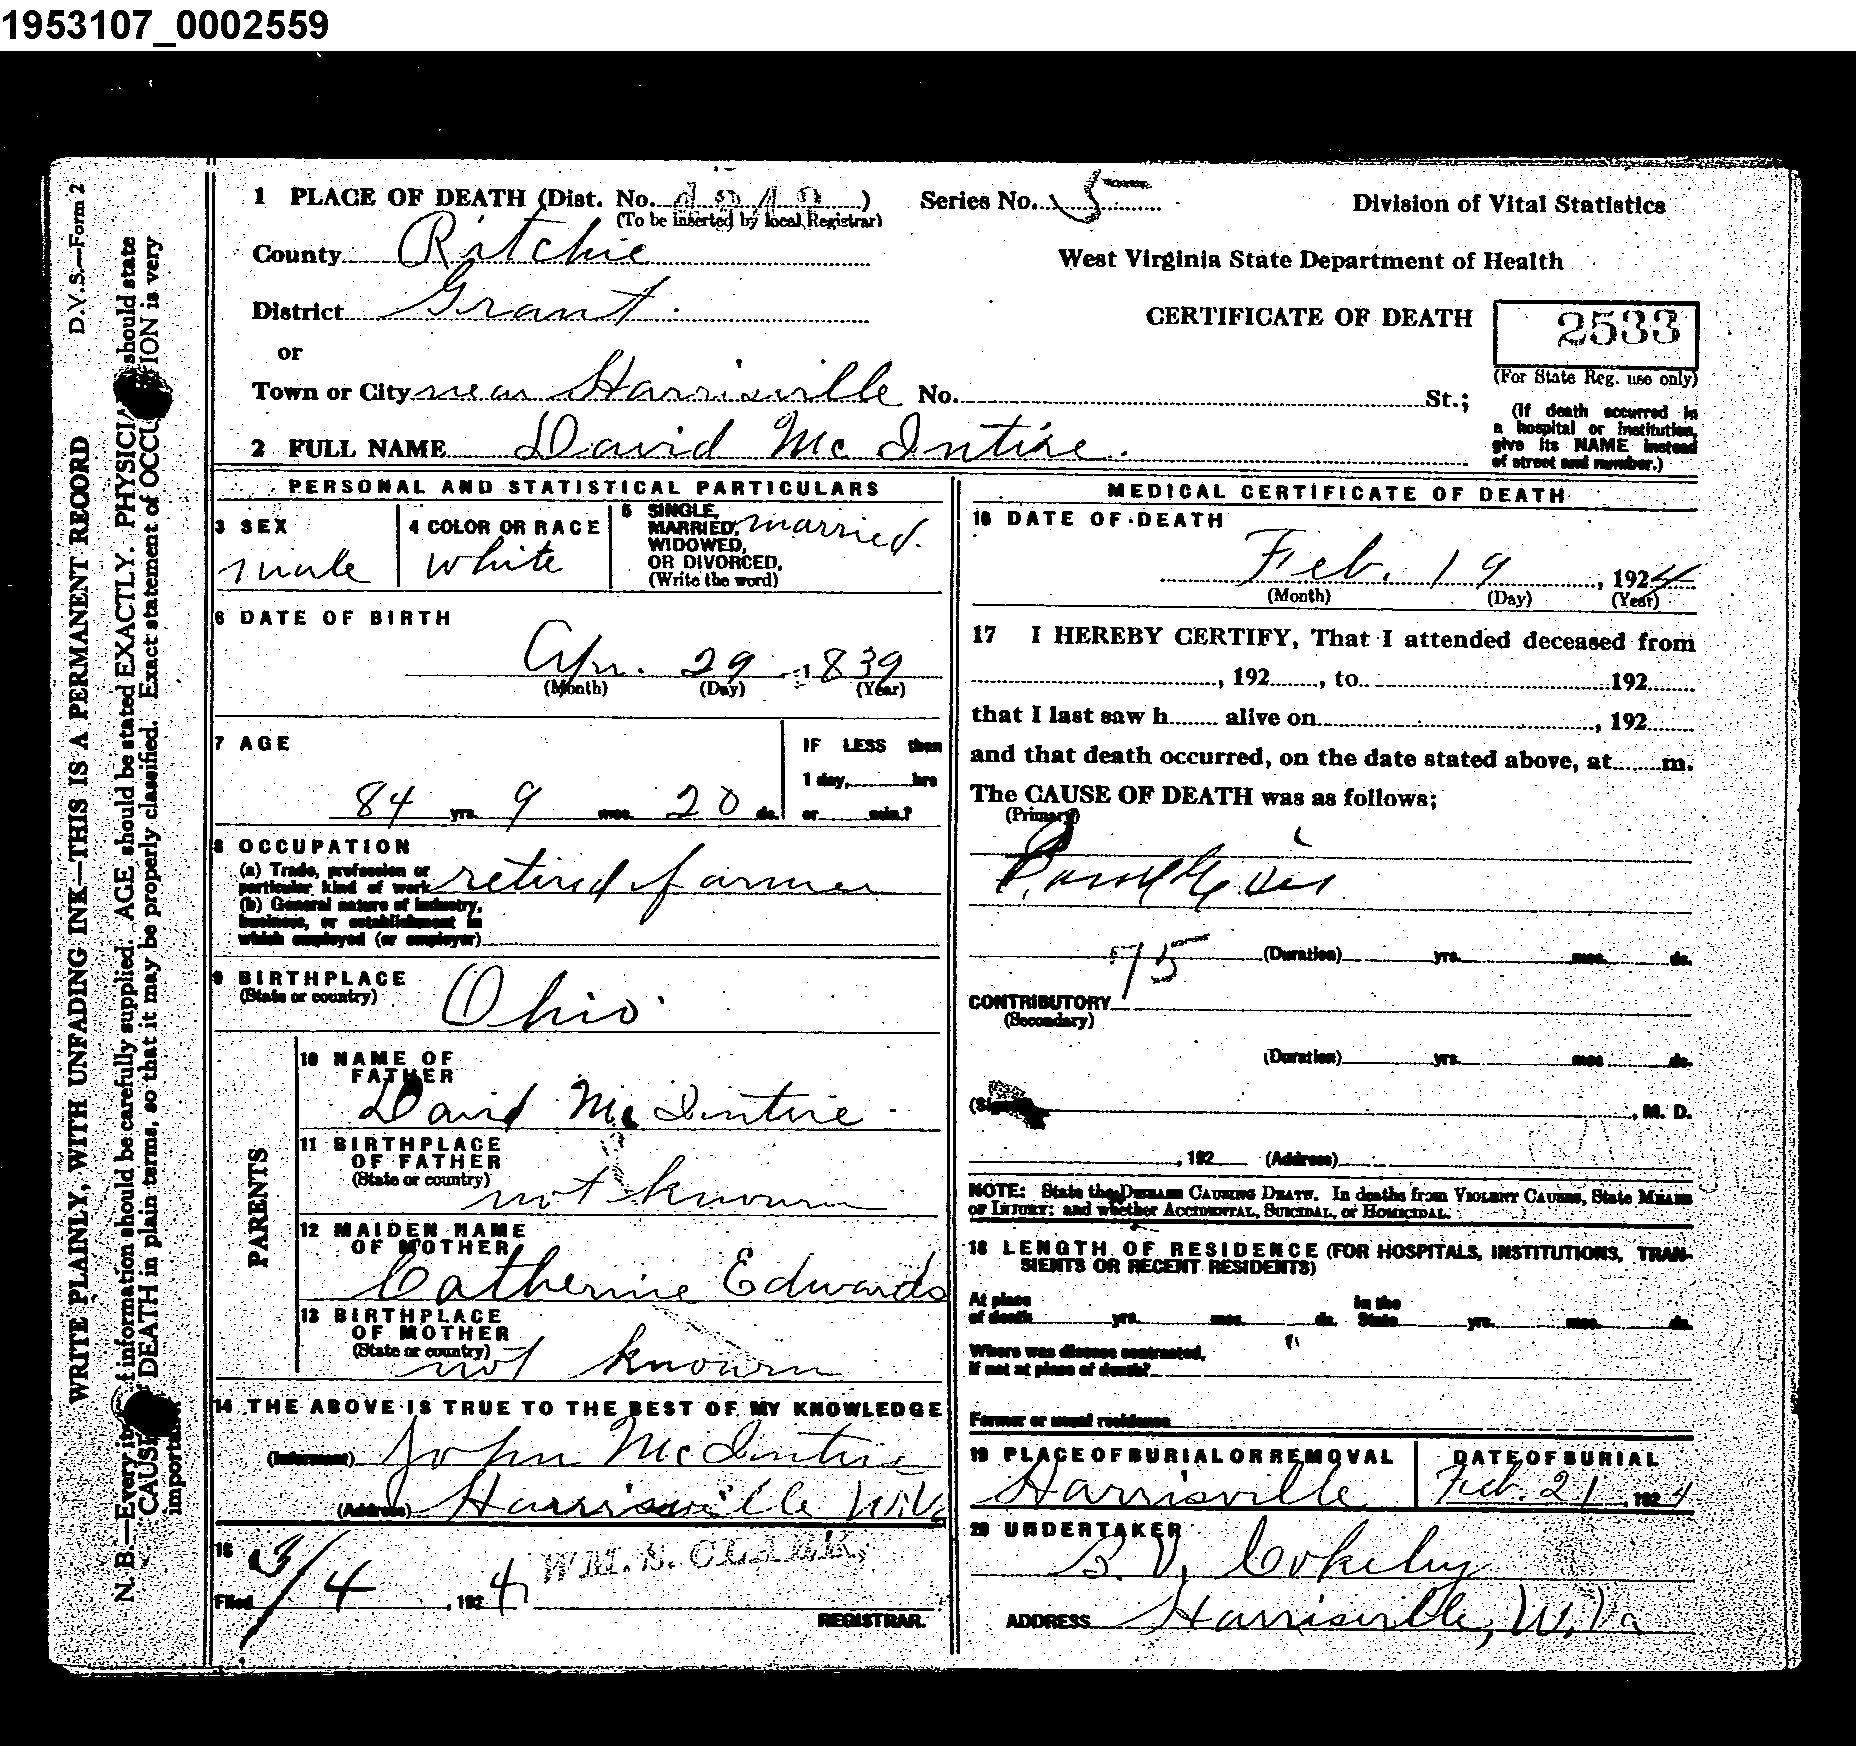 1953107_0002559
D.V.S.—Form 2
WRITE PLAINLY, WITH UNFADING INK—THIS IS A PERMANENT RECORD
N. B.—Every item of information should be carefully supplied. AGE should be stated EXACTLY. PHYSICIANS should state
CAUSE OF DEATH in plain terms, so that it may be properly classified. Exact statement of OCCUPATION is very
important.
1 PLACE OF DEATH (Dist. No. ) Series No. 5 Division of Vital Statistics
(To be inserted by local Registrar)
County Ritchie
West Virginia State Department of Health
District Grant.
CERTIFICATE OF DEATH 2533
(For State Reg. use only)
or
Town or City near Harrisville No. St.;
(If death occurred in
a hospital or institution,
give its NAME instead
of street and number.)
2 FULL NAME David Mc Intire.
PERSONAL AND STATISTICAL PARTICULARS
3 SEX male
4 COLOR OR RACE white
5 SINGLE,
MARRIED, married.
WIDOWED,
OR DIVORCED,
(Write the word)
6 DATE OF BIRTH
Apr. 29 1839
(Month) (Day) (Year)
7 AGE
84 yrs. 9 mos. 20 ds.
IF LESS than
1 day, hrs
or min.?
8 OCCUPATION
(a) Trade, profession or
particular kind of work retired farmer
(b) General nature of industry,
business, or establishment in
which employed (or employer)
9 BIRTHPLACE
(State or country) Ohio
PARENTS
10 NAME OF
FATHER
David McIntire
11 BIRTHPLACE
OF FATHER
(State or country) not known
12 MAIDEN NAME
OF MOTHER
Catherine Edwards
13 BIRTHPLACE
OF MOTHER
(State or country) not known
14 THE ABOVE IS TRUE TO THE BEST OF MY KNOWLEDGE
(Informant) John McIntire
(Address) Harrisville W.Va
15
Filed 3/4, 1924 WM. S.
REGISTRAR.
MEDICAL CERTIFICATE OF DEATH
16 DATE OF DEATH
Feb. 19, 1924
(Month) (Day) (Year)
17 I HEREBY CERTIFY, That I attended deceased from
, 192 , to 192
that I last saw h alive on , 192
and that death occurred, on the date stated above, at m.
The CAUSE OF DEATH was as follows;
(Primary)
75 (Duration) yrs. mos. ds.
CONTRIBUTORY
(Secondary)
(Duration) yrs. mos. ds.
(Signed) , M. D.
, 192 (Address)
NOTE: State the DISEASE CAUSING DEATH. In deaths from VIOLENT CAUSES, State MEANS
OF INJURY; and whether ACCIDENTAL, SUICIDAL, or HOMICIDAL.
18 LENGTH OF RESIDENCE (FOR HOSPITALS, INSTITUTIONS, TRAN-
SIENTS OR RECENT RESIDENTS)
At place In the
of death yrs. mos. ds. State yrs. mos. ds.
Where was disease contracted,
if not at place of death?
Former or usual residence
19 PLACE OF BURIAL OR REMOVAL DATE OF BURIAL
Harrisville Feb. 21, 1924
20 UNDERTAKER
B. V. Cokeley
ADDRESS Harrisville, W.Va